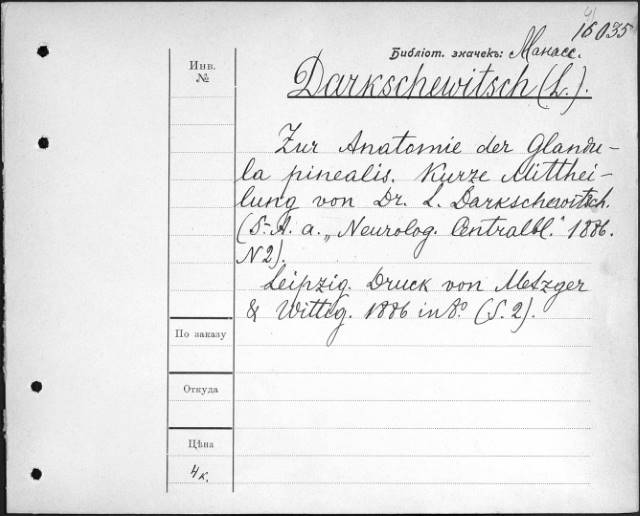 16035
Библіот. значекъ: Манасс.
Инв.
№
Darkschewitsch (L.).
Zur Anatomie der Glandu-
la pinealis. Kurze Mitthei-
lung von Dr. L. Darkschewitsch.
(S.-A. a. „Neurolog. Centralbl." 1886.
N 2).
Leipzig. Druck von Metzger
& Wittig. 1886 in 8º. (S. 2).
По заказу
Откуда
Цѣна
4 к.